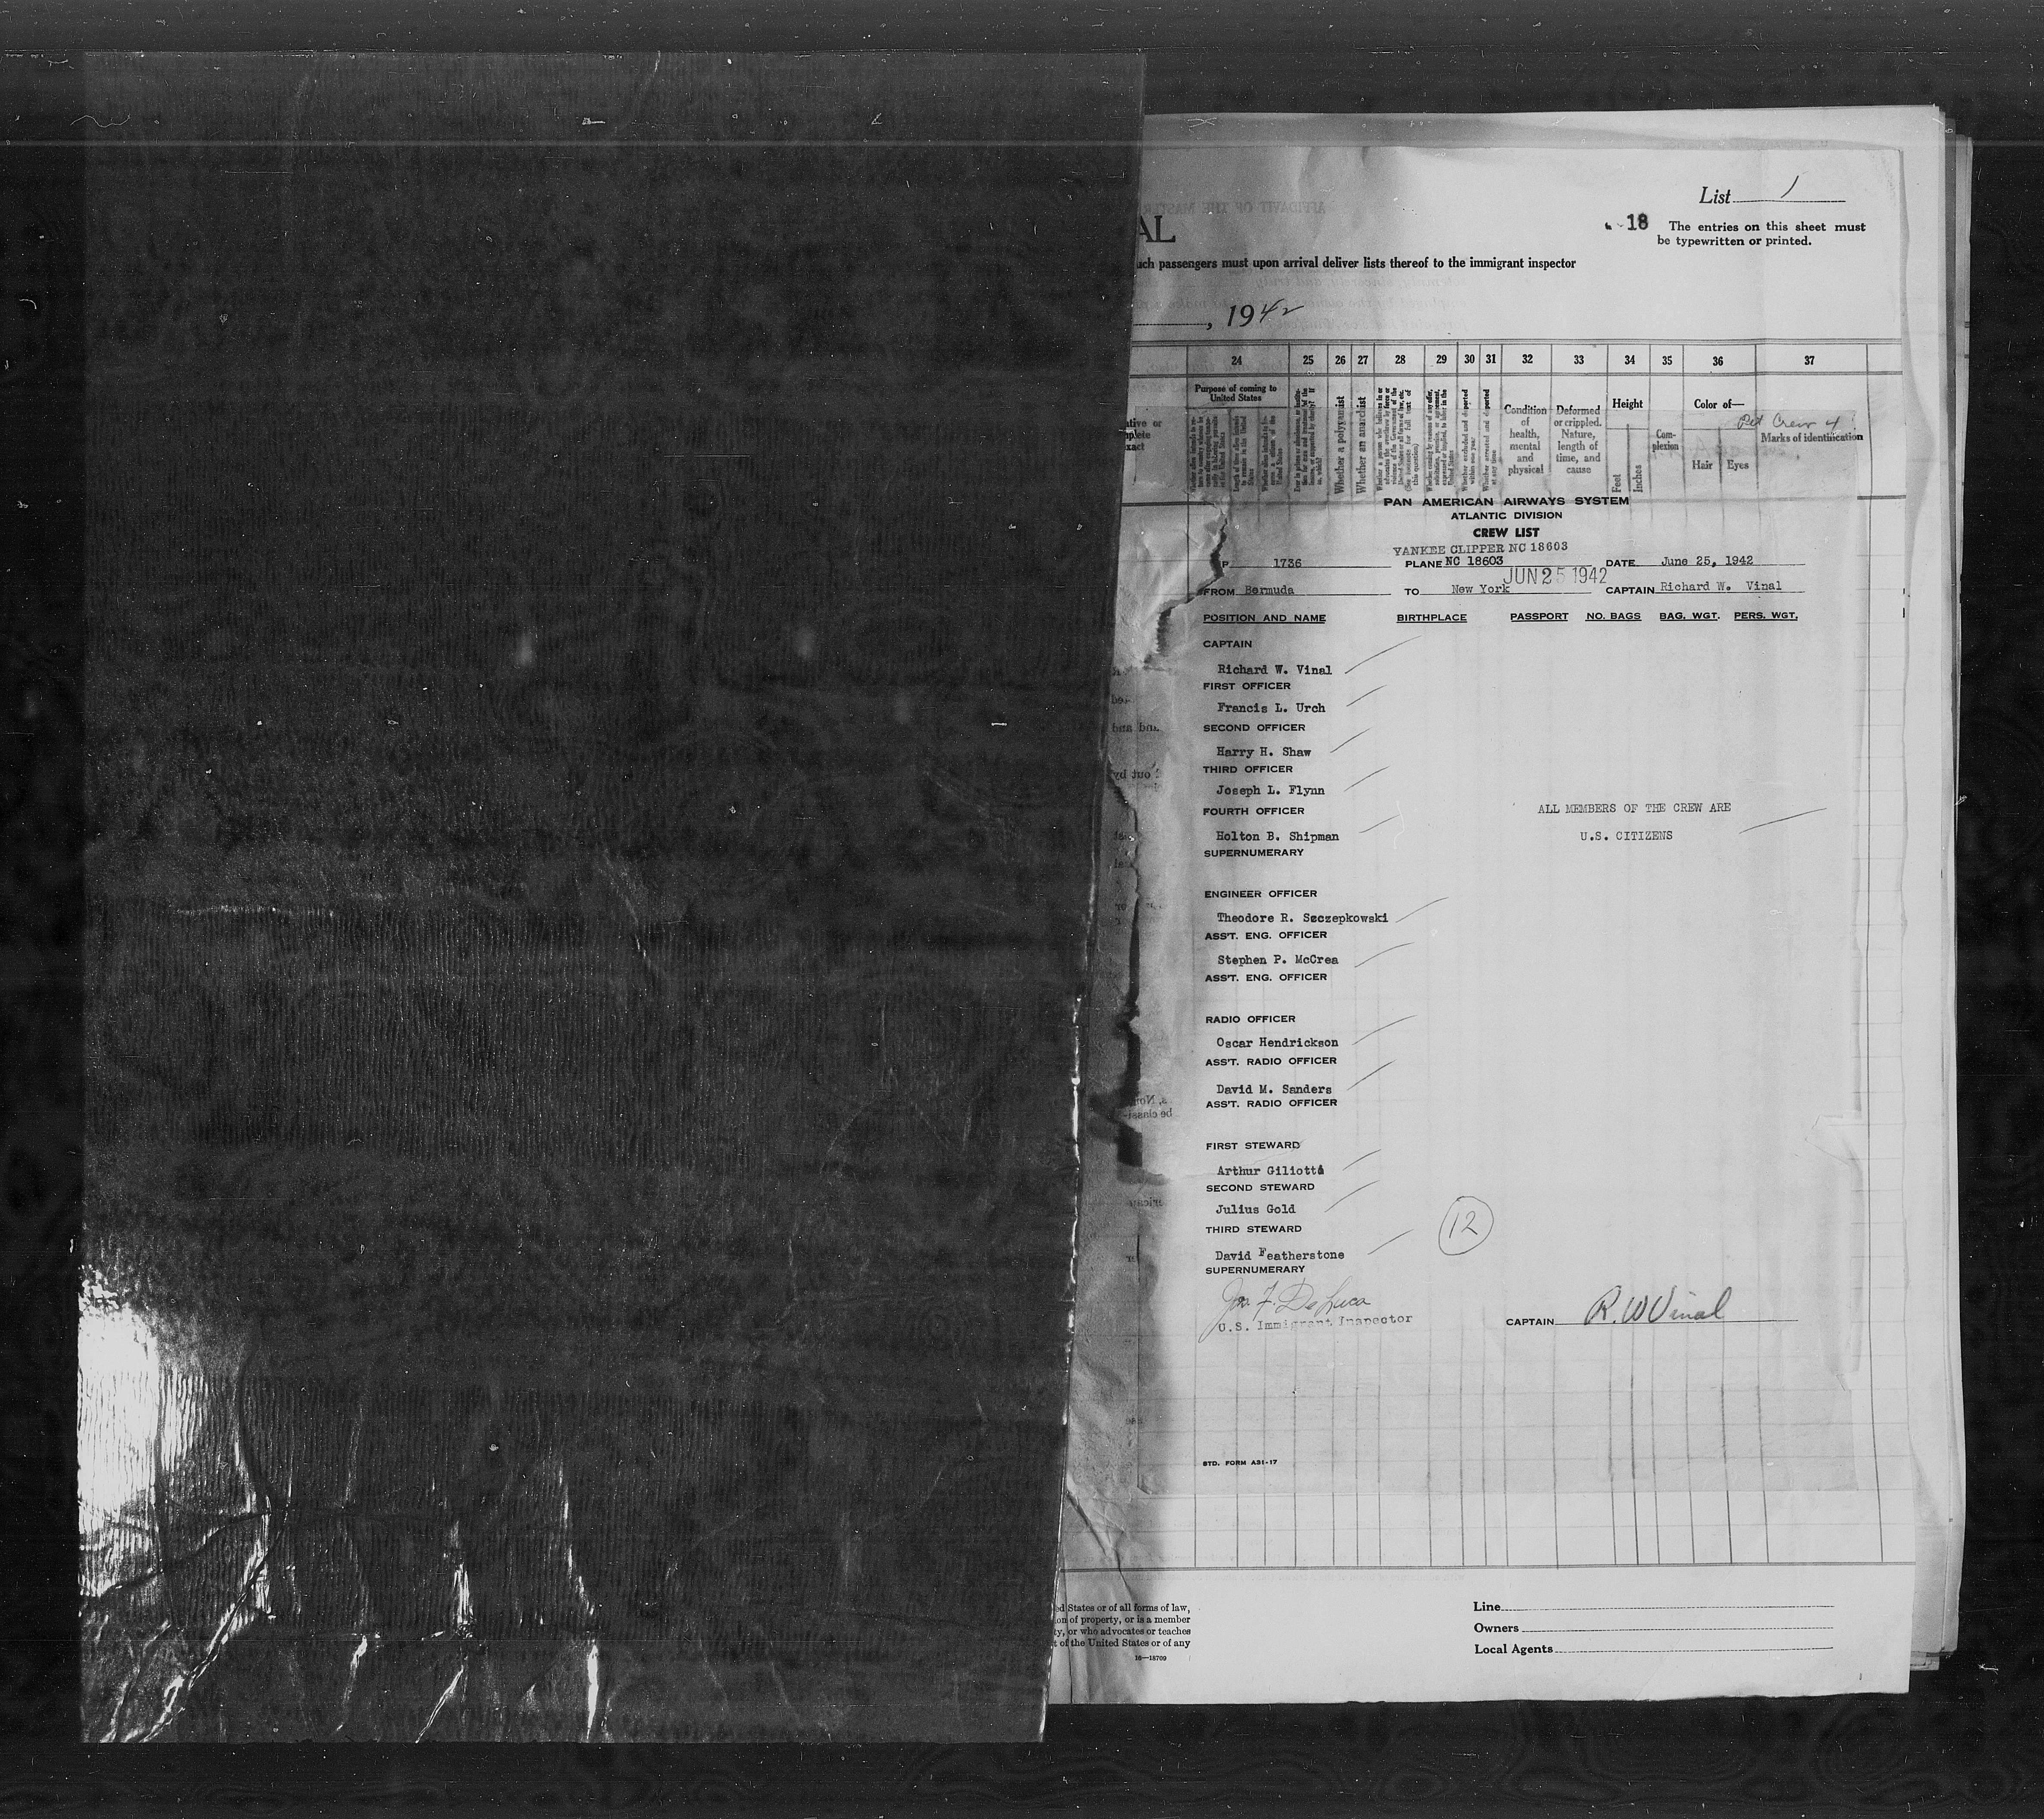 List 1
18 The entries on this sheet must
be typewritten or printed.
AL
uch passengers must upon arrival deliver lists thereof to the immigrant inspector
, 1942
24 25 26 27 28 29 30 31 32 33 34 35 36 37
Purpose of coming to
United States
Whether a polygamist
Whether an anarchist
Condition
of
health,
mental
and
physical
Deformed
or crippled.
Nature,
length of
time, and
cause
Height
Feet
Inches
Com-
plexion
Color of—
Hair Eyes
Crew 4
Marks of identification
PAN AMERICAN AIRWAYS SYSTEM
ATLANTIC DIVISION
CREW LIST
YANKEE CLIPPER NC 18603
P 1736 PLANE NC 18603 DATE June 25, 1942
JUN 25 1942
FROM Bermuda TO New York CAPTAIN Richard W. Vinal
POSITION AND NAME BIRTHPLACE PASSPORT NO. BAGS BAG. WGT. PERS. WGT.
CAPTAIN
Richard W. Vinal
FIRST OFFICER
Francis L. Urch
SECOND OFFICER
Harry H. Shaw
THIRD OFFICER
Joseph L. Flynn
FOURTH OFFICER
ALL MEMBERS OF THE CREW ARE
U.S. CITIZENS
Holton B. Shipman
SUPERNUMERARY
ENGINEER OFFICER
Theodore R. Szczepkowski
ASS'T. ENG. OFFICER
Stephen P. McCrea
ASS'T. ENG. OFFICER
RADIO OFFICER
Oscar Hendrickson
ASS'T. RADIO OFFICER
David M. Sanders
ASS'T. RADIO OFFICER
FIRST STEWARD
Arthur Giliotta
SECOND STEWARD
Julius Gold
12
THIRD STEWARD
David Featherstone
SUPERNUMERARY
Jos. F. DeLuca
U.S. Immigrant Inspector
CAPTAIN R. W Vinal
STD. FORM A31-17
ed States or of all forms of law,
on of property, or is a member
ty, or who advocates or teaches
t of the United States or of any
16—18709
Line
Owners
Local Agents